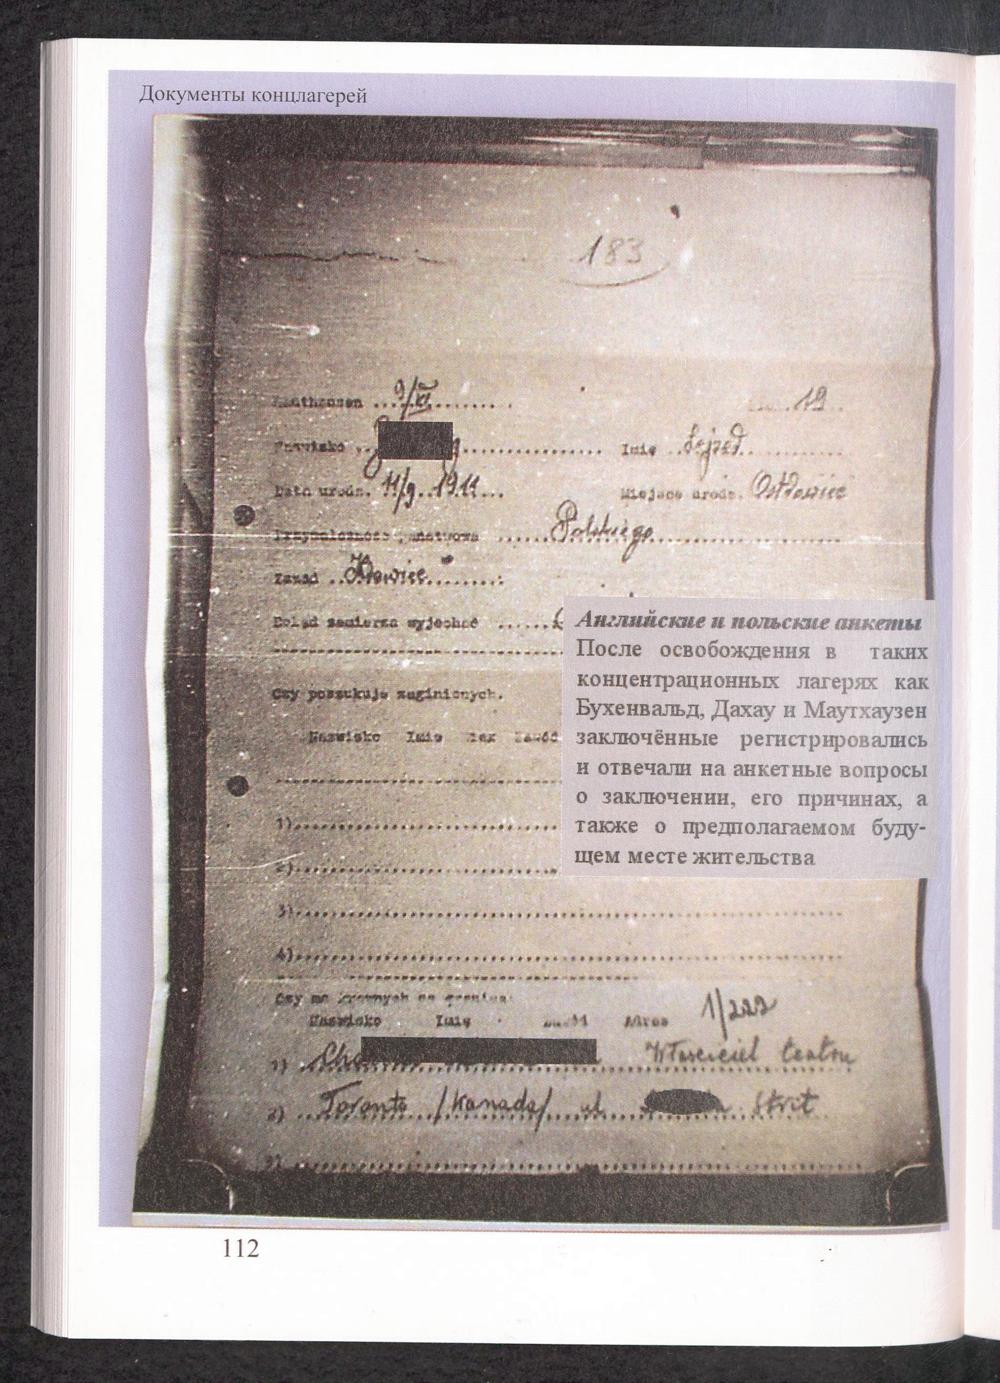 Документы концлагерей
183
Mauthausen ... 9/XI ........ 19 ..
Nazwisko ........................ Imię .. Lejzed ........
Data urodz. 11/9 . 1911 ... Miejsce urodz. Ostrowiec
Przynależność państwowa ...... Polskiego ..............
Zawód .. Krawiec ........:
Dokąd zamierza wyjechać ......
Czy poszukuje zaginionych.
Nazwisko Imię Zawód
1)..............................
2)..............................
3)............................................................
4)............................................................
Czy ma krewnych za granicą:
Nazwisko Imię Zawód Adres 1/222
1) Właściciel teatru
2) Toronto /Kanada/ ul. Strit
3) ............................................................
Английские и польские анкеты
После освобождения в таких
концентрационных лагерях как
Бухенвальд, Дахау и Маутхаузен
заключённые регистрировались
и отвечали на анкетные вопросы
о заключении, его причинах, а
также о предполагаемом буду-
щем месте жительства
112